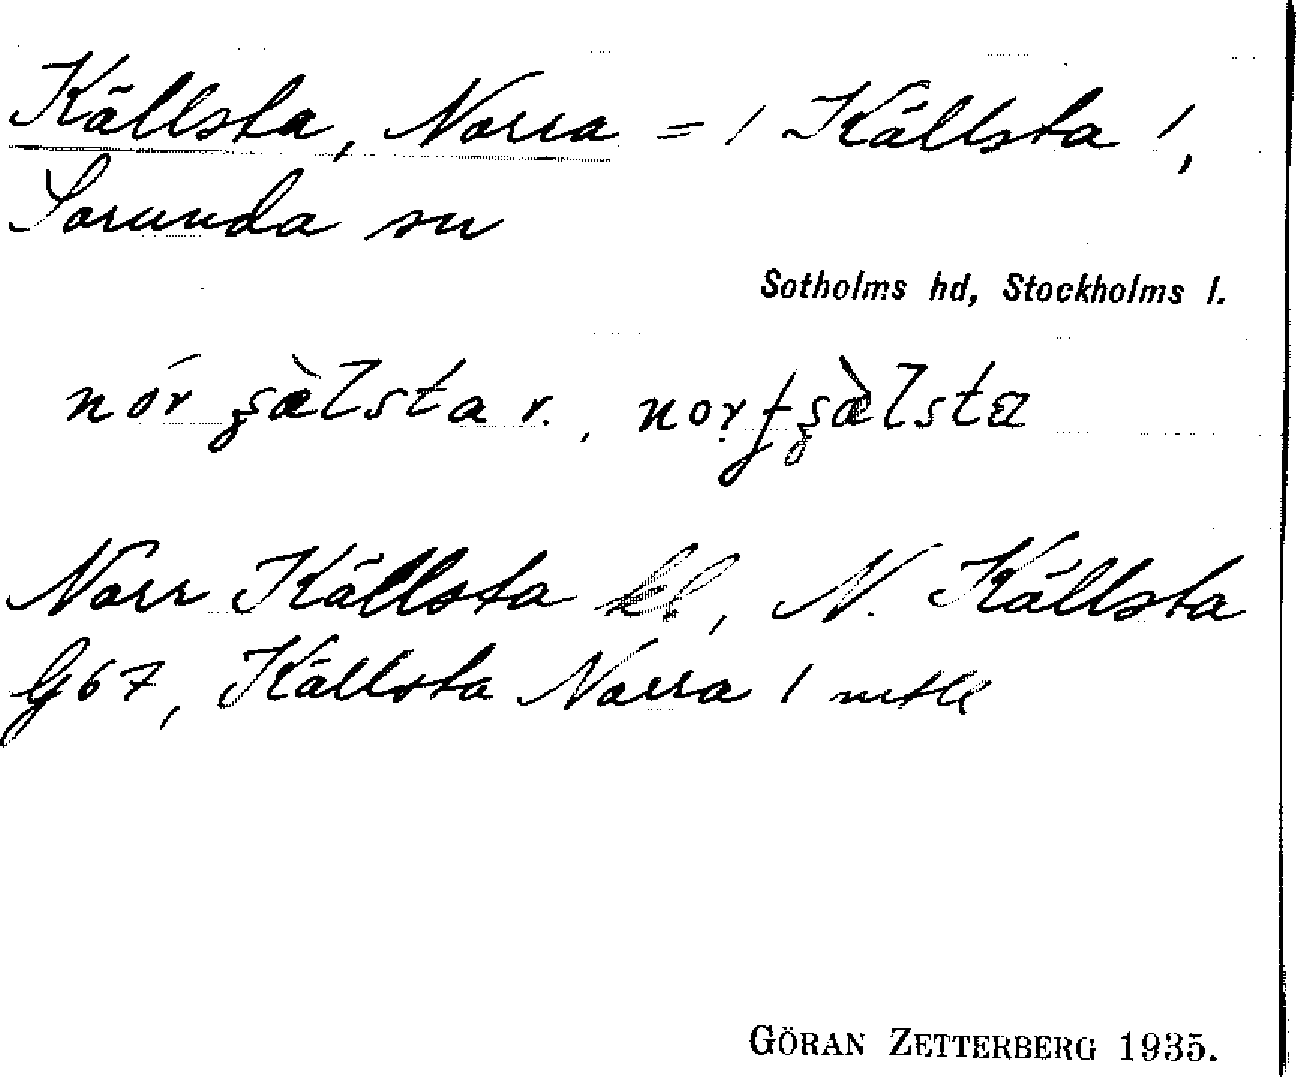 Källsta, Norra = / Källsta /,
Sorunda sn
Sotholms hd, Stockholms l.
Norr Källsta bl, N. Källsta
G67, Källsta Norra 1 mtl
GÖRAN ZETTERBERG 1935.